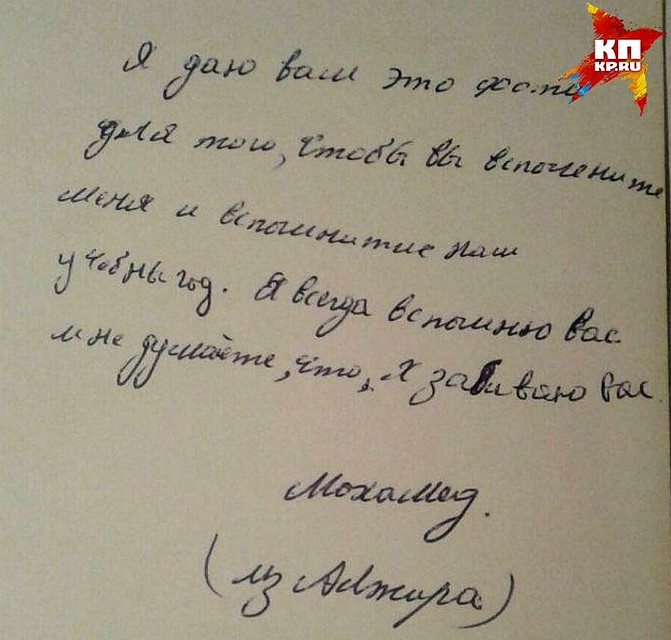 КП
KP.RU
Я даю вам это фото
для того, чтобы вы вспомините
меня и вспоминитие наш
учебны год. Я всегда вспомню вас
и не думаете, что, я забываю вас.
Мохамед.
(из Алжира)